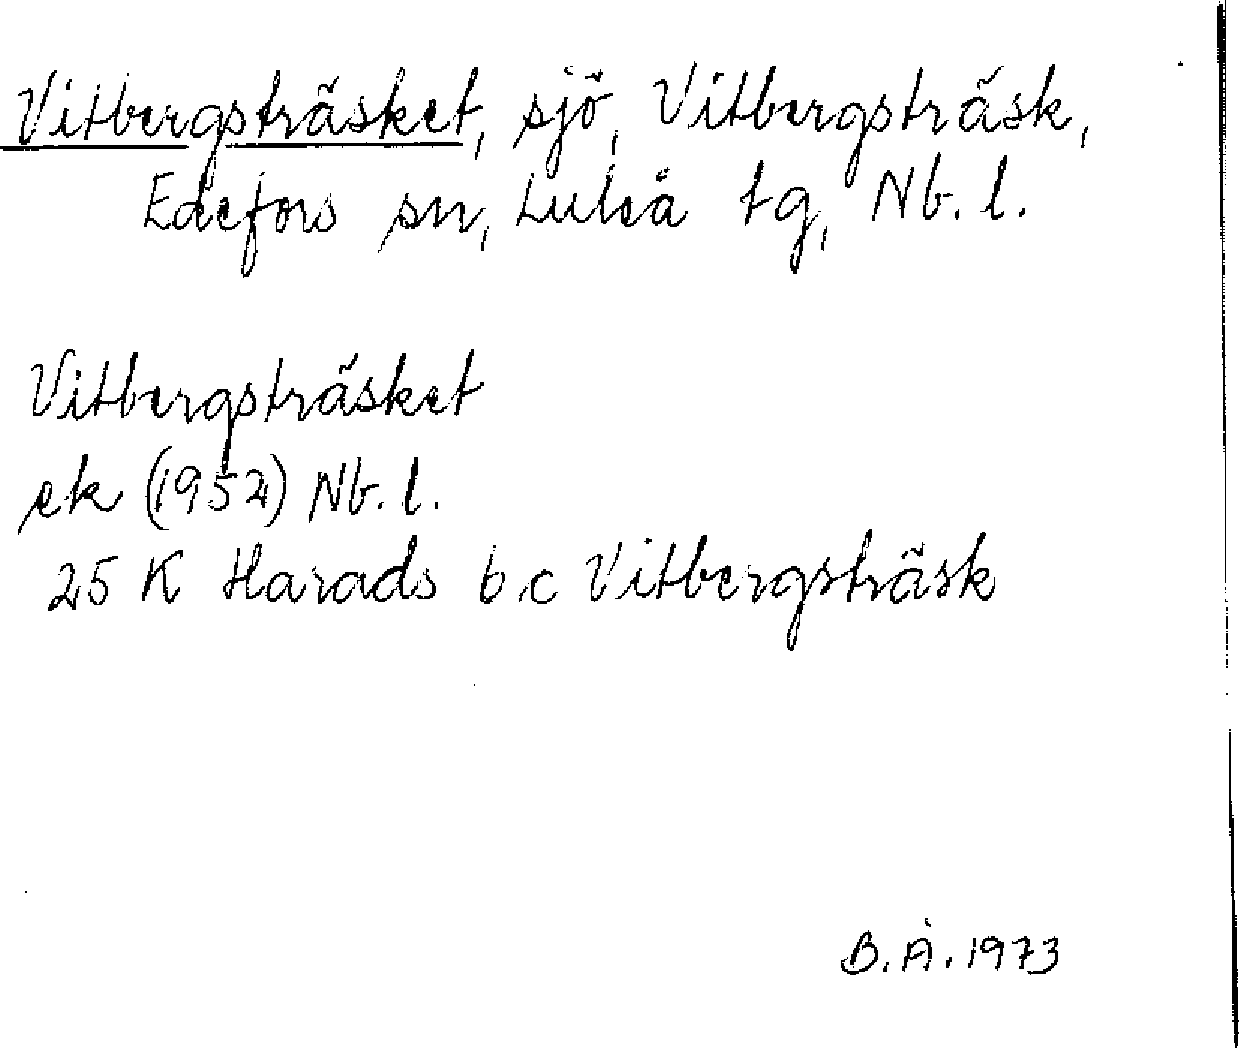 Vitbergsträsket, sjö, Vitbergsträsk,
Edefors sn, Luleå tg, Nb. l.
Vitbergsträsket
ek (1952) Nb. l.
25 K Harads b.c Vitbergsträsk
B. Å. 1973